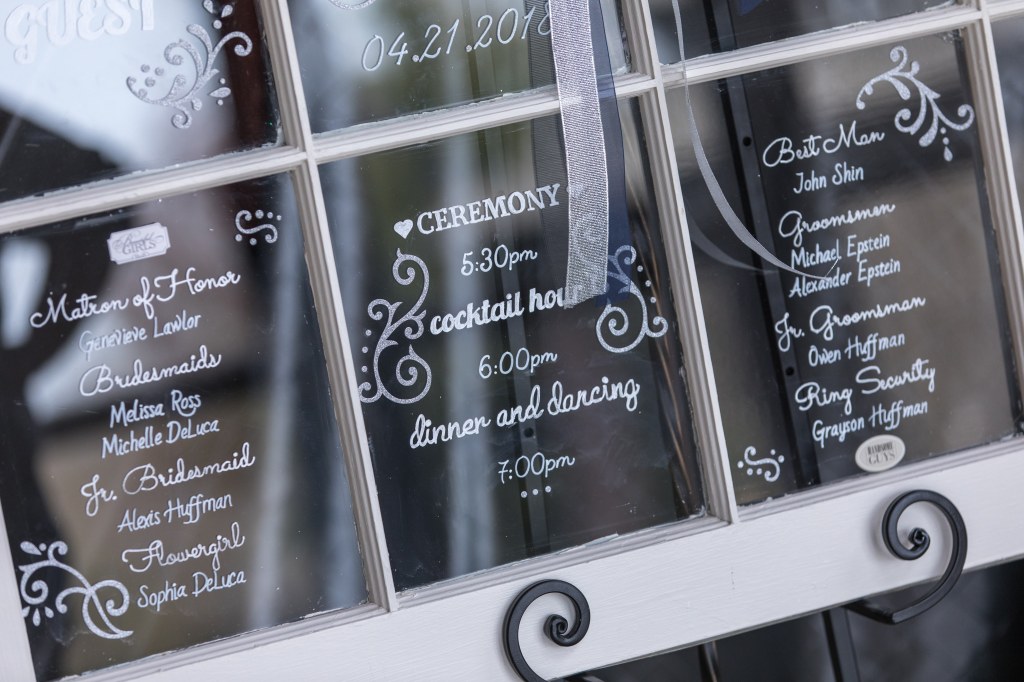 GUEST
04.21.2018
GIRLS
Matron of Honor
Genevieve Lawlor
Bridesmaids
Melissa Ross
Michelle DeLuca
Jr. Bridesmaid
Alexis Huffman
Flowergirl
Sophia DeLuca
CEREMONY
5:30pm
cocktail hour
6:00pm
dinner and dancing
7:00pm
Best Man
John Shin
Groomsmen
Michael Epstein
Alexander Epstein
Jr. Groomsman
Owen Huffman
Ring Security
Grayson Huffman
HANDSOME
GUYS